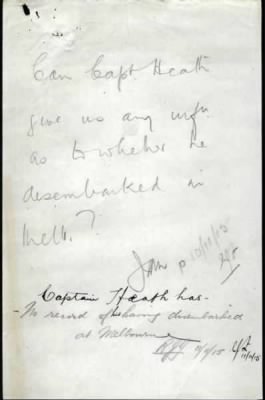 Can Capt. Heath
give us any infn.
as to whether he
desembarked in
Melb.?
10/11/15
Captain Heath has -
- No record of having disembarked
at Melbourne
11/11/15